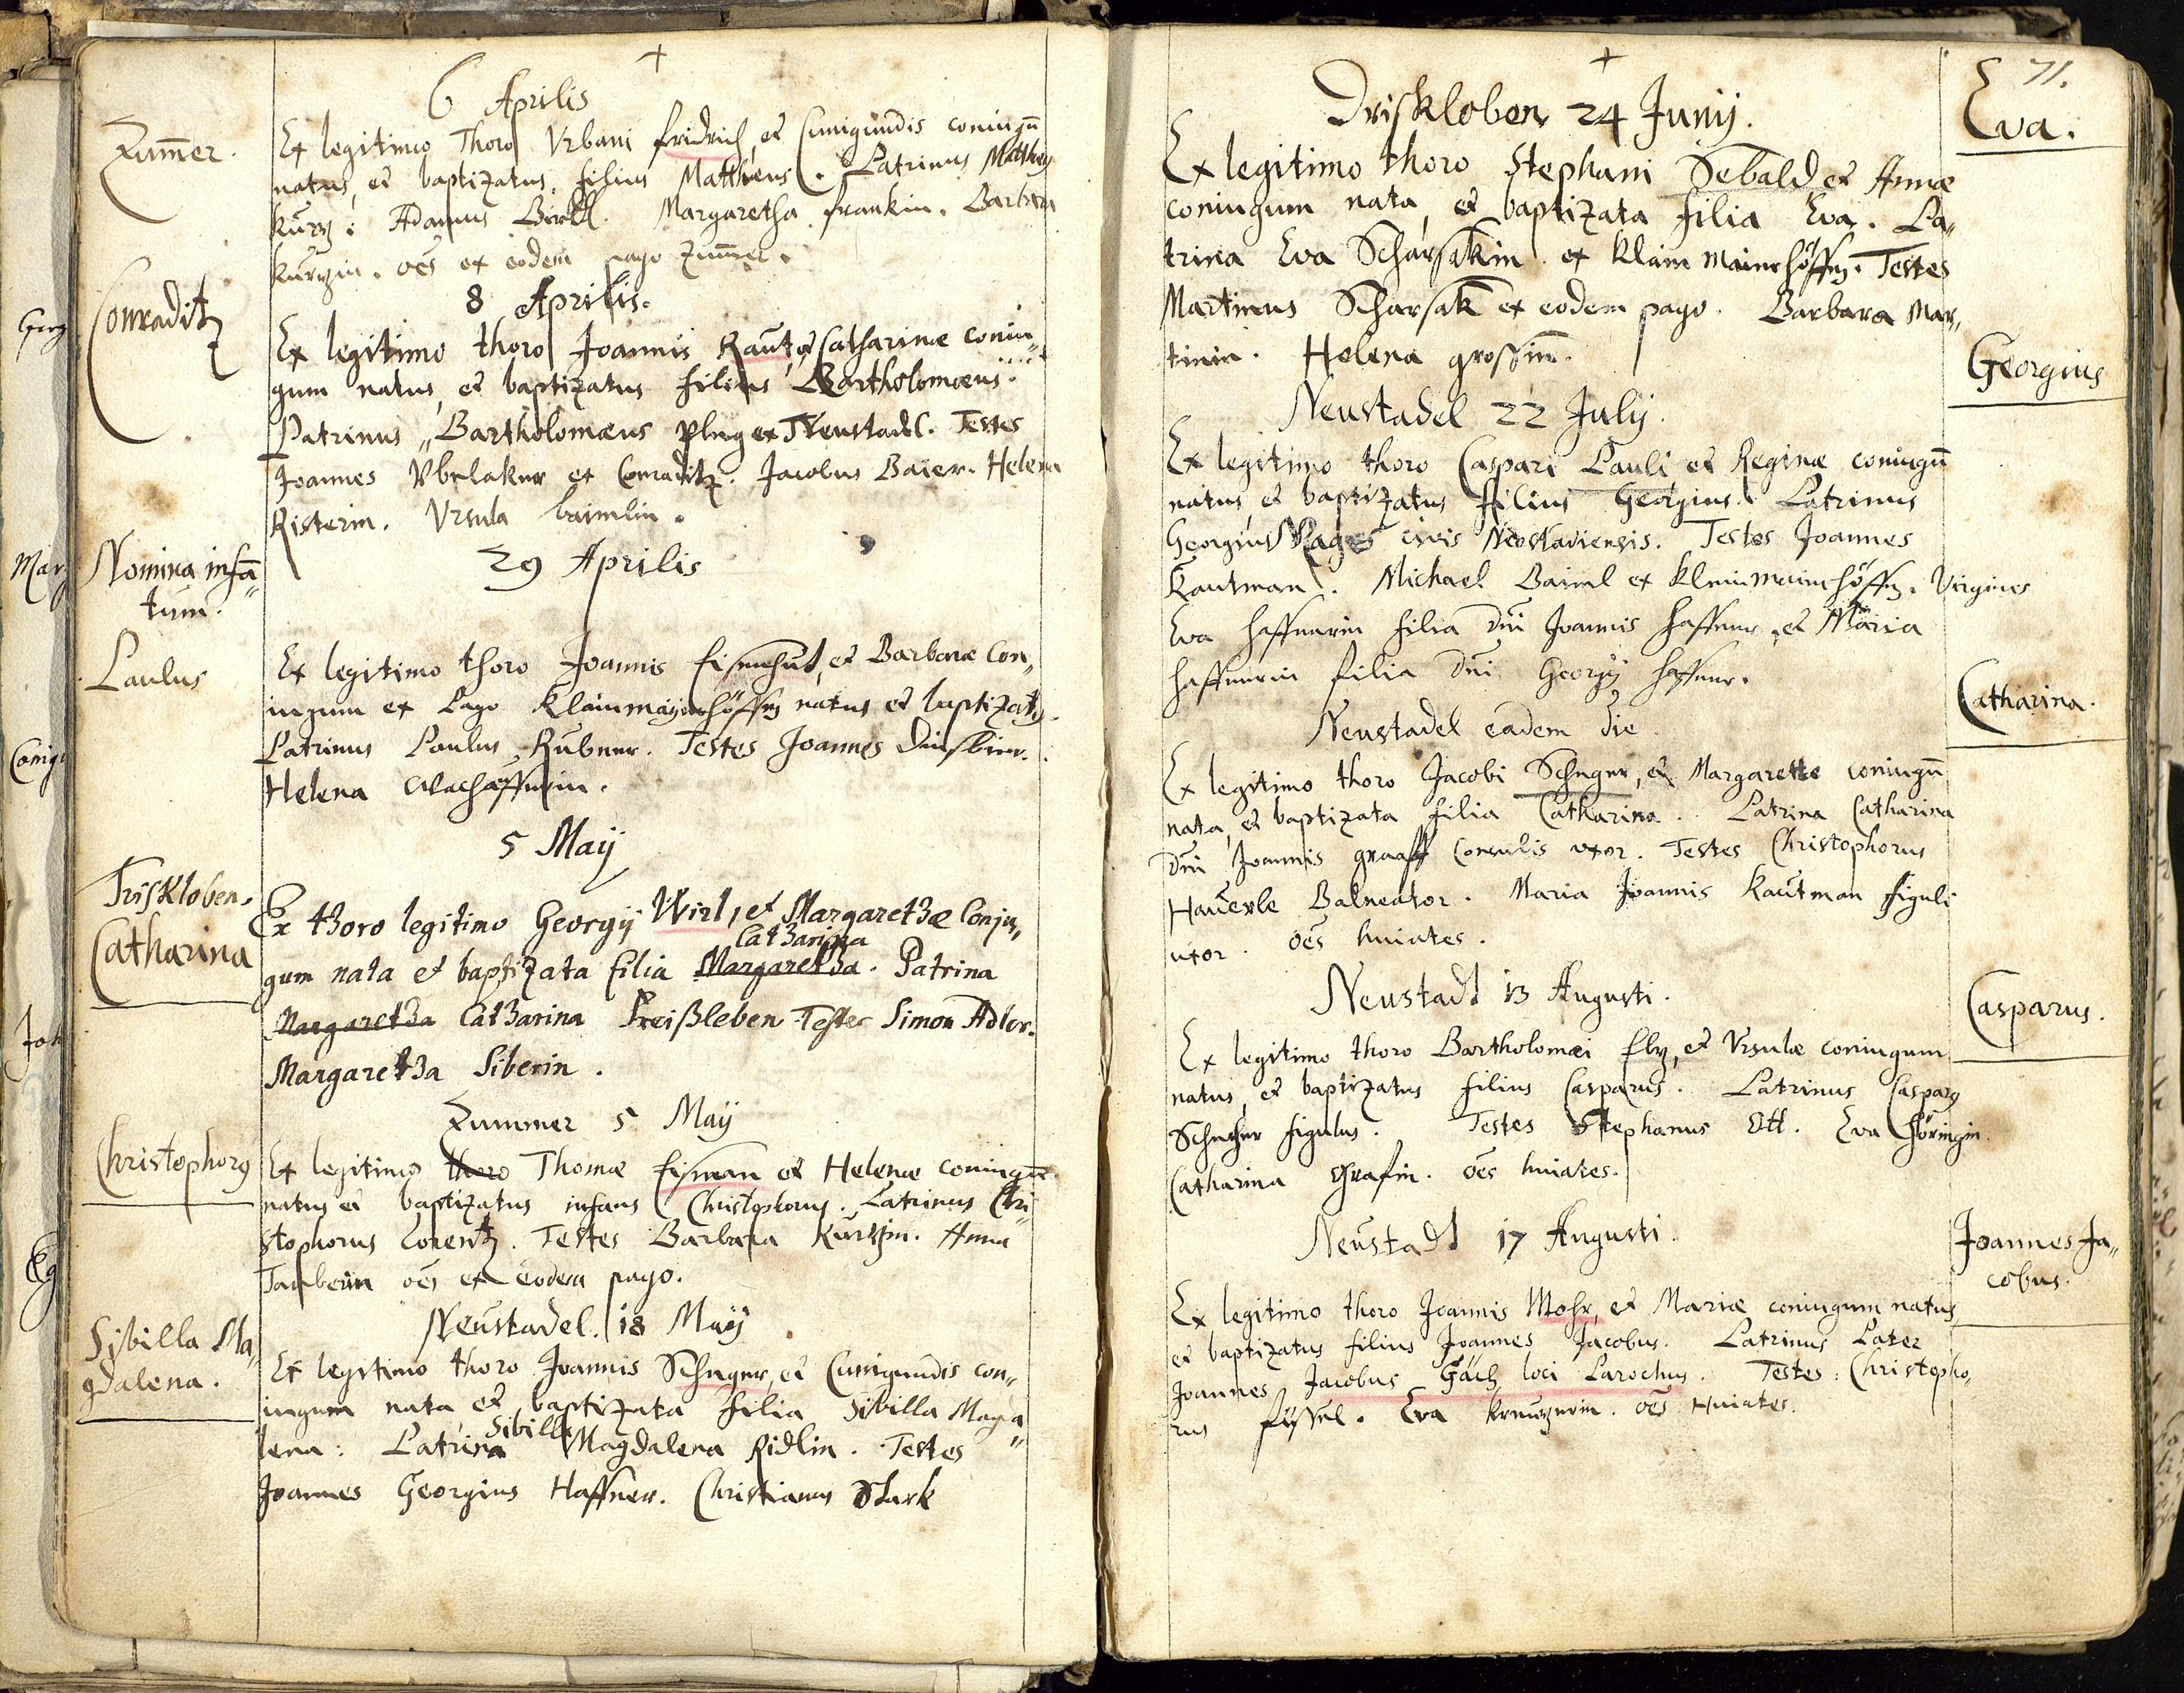 6 Aprilis
Zum̄er.
Ex legitimo Thoro Vrbani fridrich, et Cunigundis coniugū
natus, et baptizatus, filius Matthæus. Patrinus Matthæus
Kurtz: Adamus Birkl. Margaretha frankin. Barbara
Kurtzin. oēs ex eodem pago Zum̄er.
8 Aprilis.
Conraditz
Ex legitimo thoro Joannis Raut, et Catharinæ coniu„
gum natus, et baptizatus filius Bartholomæus.
Patrinus „Bartholomæus Plug ex Neustadel. Testes
Joannes Vbelaker ex Conraditz. Jacobus Baier. Helena
Risterin. Vrsula baimlin.
29 Aprilis
Nomina infā„
tum.
Paulus
Ex legitimo thoro Joannis Eisenhut, et Barbaræ Con„
iugum ex Pago Klainmayerhöffen natus et baptizatus.
Patrinus Paulus Rubner. Testes Joannes
Helena
5 Maÿ
Triskloben.
Catharina
Ex thoro legitimo Georgÿ Wirl, et Margarethæ Conju„
Catharina
gum nata et baptizata filia Margaretha. Patrina
Margaretha Catharina Preißleben Testes Simon Adler.
Margaretha Siberin.
Zummer 5 Maÿ
Christophorus
Ex legitimo thoro Thomæ Eisman et Helenæ coniugū
natus et baptizatus infans Christophorus. Patrinus Chri„
stophorus Lorentz. Testes Barbara Kurtzin. Anna
Tauberin oēs ex eodem pago.
Neustadel. 18 Maÿ
Sibilla Ma„
gdalena.
Ex legitimo thoro Joannis Scheger, et Cunigundis con„
iugum nata et baptizata filia Sibilla Magda„
Sibilla
lena: Patrina Magdalena Ridlin. Testes
Joannes Georgius Haffner. Christianus Stark
71.
Driskloben 24 Junij.
Eva.
Ex legitimo thoro Stephani Sebald et Annæ
coniugum nata, et baptizata filia Eva. Pa„
trina Eva Scharsakin ex Klain mainrhöffen. Testes
Martinus Scharsak ex eodem pago. Barbara Mar„
tinin. Helena grossin.
Neustadel 22 Julij.
Georgius
Ex legitimo thoro Caspari Pauli, et Reginæ coniugū
natus, et baptizatus filius Georgius. Patrinus
Georgius Mages civis Neostadiensis. Testes Joannes
Kautman. Michael Baiml ex Kleinmainrhöffen. Virgines
Eva haffnerin filia Dn̄i Joannis haffner, et Maria
haffnerin filia Dn̄i Georgÿ haffner.
Neustadel eadem die
Catharina.
Ex legitimo thoro Jacobi Scheger, et Margarettæ coniugū
nata, et baptizata filia Catharina. Patrina Catharina
Dn̄i Joannis graaff Consulis uxor. Testes Christophorus
Hauerle Balneator. Maria Joannis Kautman figuli
uxor. oēs huiates.
Neustadt 13 Augusti.
Casparus.
Ex legitimo thoro Bartholomæi Eltz, et Vrsulæ coniugum
natus, et baptizatus filius Casparus. Patrinus Casparus
Scheger figulus. Testes Stephanus Ott. Eva Göringin.
Catharina Grafin. oēs huiates.
Neustadt 17 Augusti.
Joannes Ja„
cobus.
Ex legitimo thoro Joannis Mohr, et Mariæ coniugum natus
et baptizatus filius Joannes Jacobus. Patrinus Pater
Joannes Jacobus Gäch loci Parochus. Testes: Christopho„
rus füssel. Eva Kreuzerin. oēs Huiates.